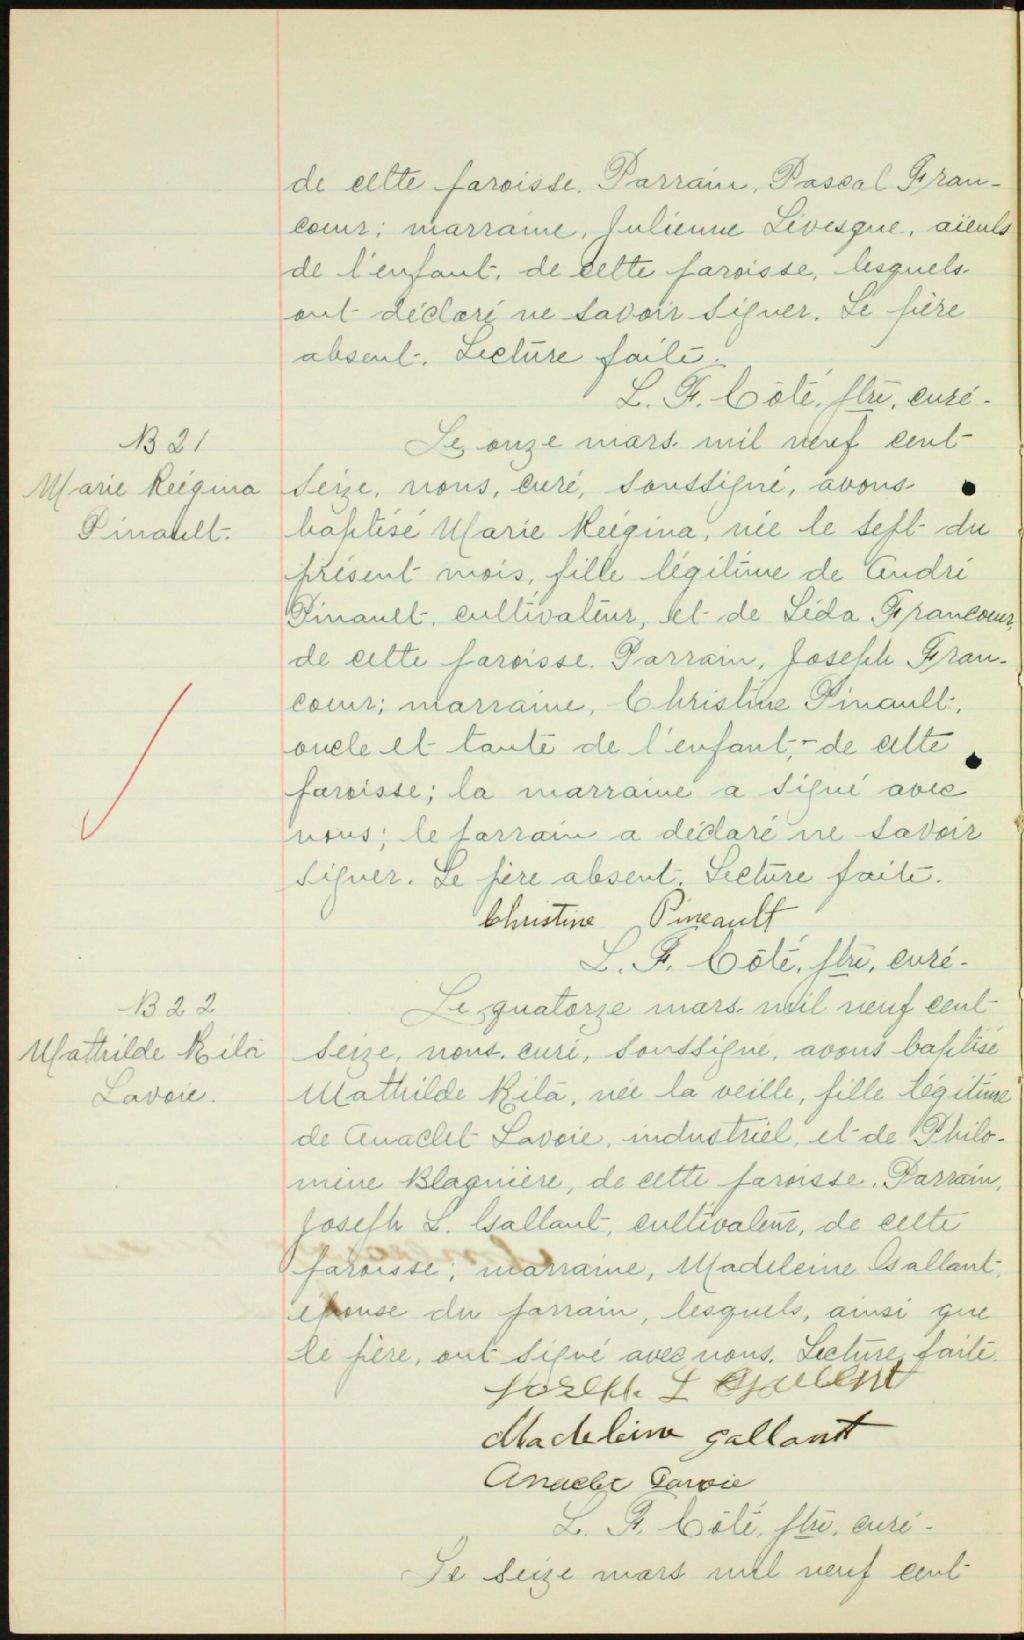 de cette paroisse. Parrain, Pascal Fran-
coeur; marraine, Julienne Lévesque, aïeuls
de l'enfant, de cette paroisse, lesquels
ont déclaré ne savoir signer. Le père
absent. Lecture faite.
L. F. Côté, ptre, curé.
B 21
Marie Régina
Pinault.
Le onze mars mil neuf cent
seize, nous, curé, soussigné, avons
baptisé Marie Régina, née le sept du
présent mois, fille légitime de André
Pinault, cultivateur, et de Léda Francoeur,
de cette paroisse. Parrain, Joseph Fran-
coeur; marraine, Christine Pinault,
oncle et tante de l'enfant, de cette
paroisse; la marraine a signé avec
nous; le parrain a déclaré ne savoir
signer. Le père absent. Lecture faite.
Christine Pineault
L. F. Côté, ptre, curé.
B 22
Mathilde Rila
Lavoie.
Le quatorze mars mil neuf cent
seize, nous, curé, soussigné, avons baptisé
Mathilde Rila, née la veille, fille légitime
de Anaclet Lavoie, industriel, et de Philo-
mène Blagnière, de cette paroisse. Parrain,
Joseph L. Gallant, cultivateur, de cette
paroisse; marraine, Madeleine Gallant,
épouse du parrain, lesquels, ainsi que
le père, ont signé avec nous. Lecture faite.
Joseph L Gallant
Madeleine Gallant
Anaclet Lavoie
L. F. Côté, ptre, curé.
Le seize mars mil neuf cent